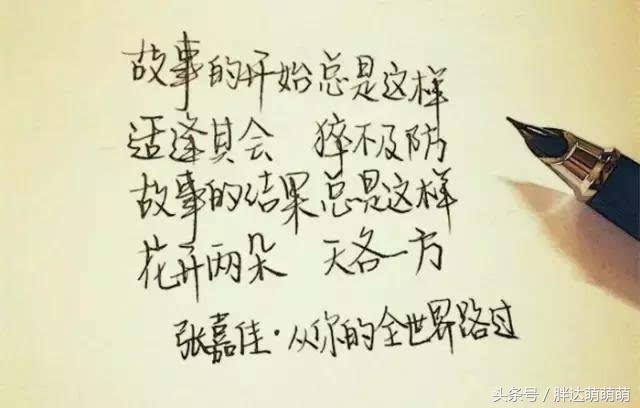 故事的开始总是这样
适逢其会 猝不及防
故事的结果总是这样
花开两朵 天各一方
张嘉佳·从你的全世界路过
头条号/胖达萌萌萌